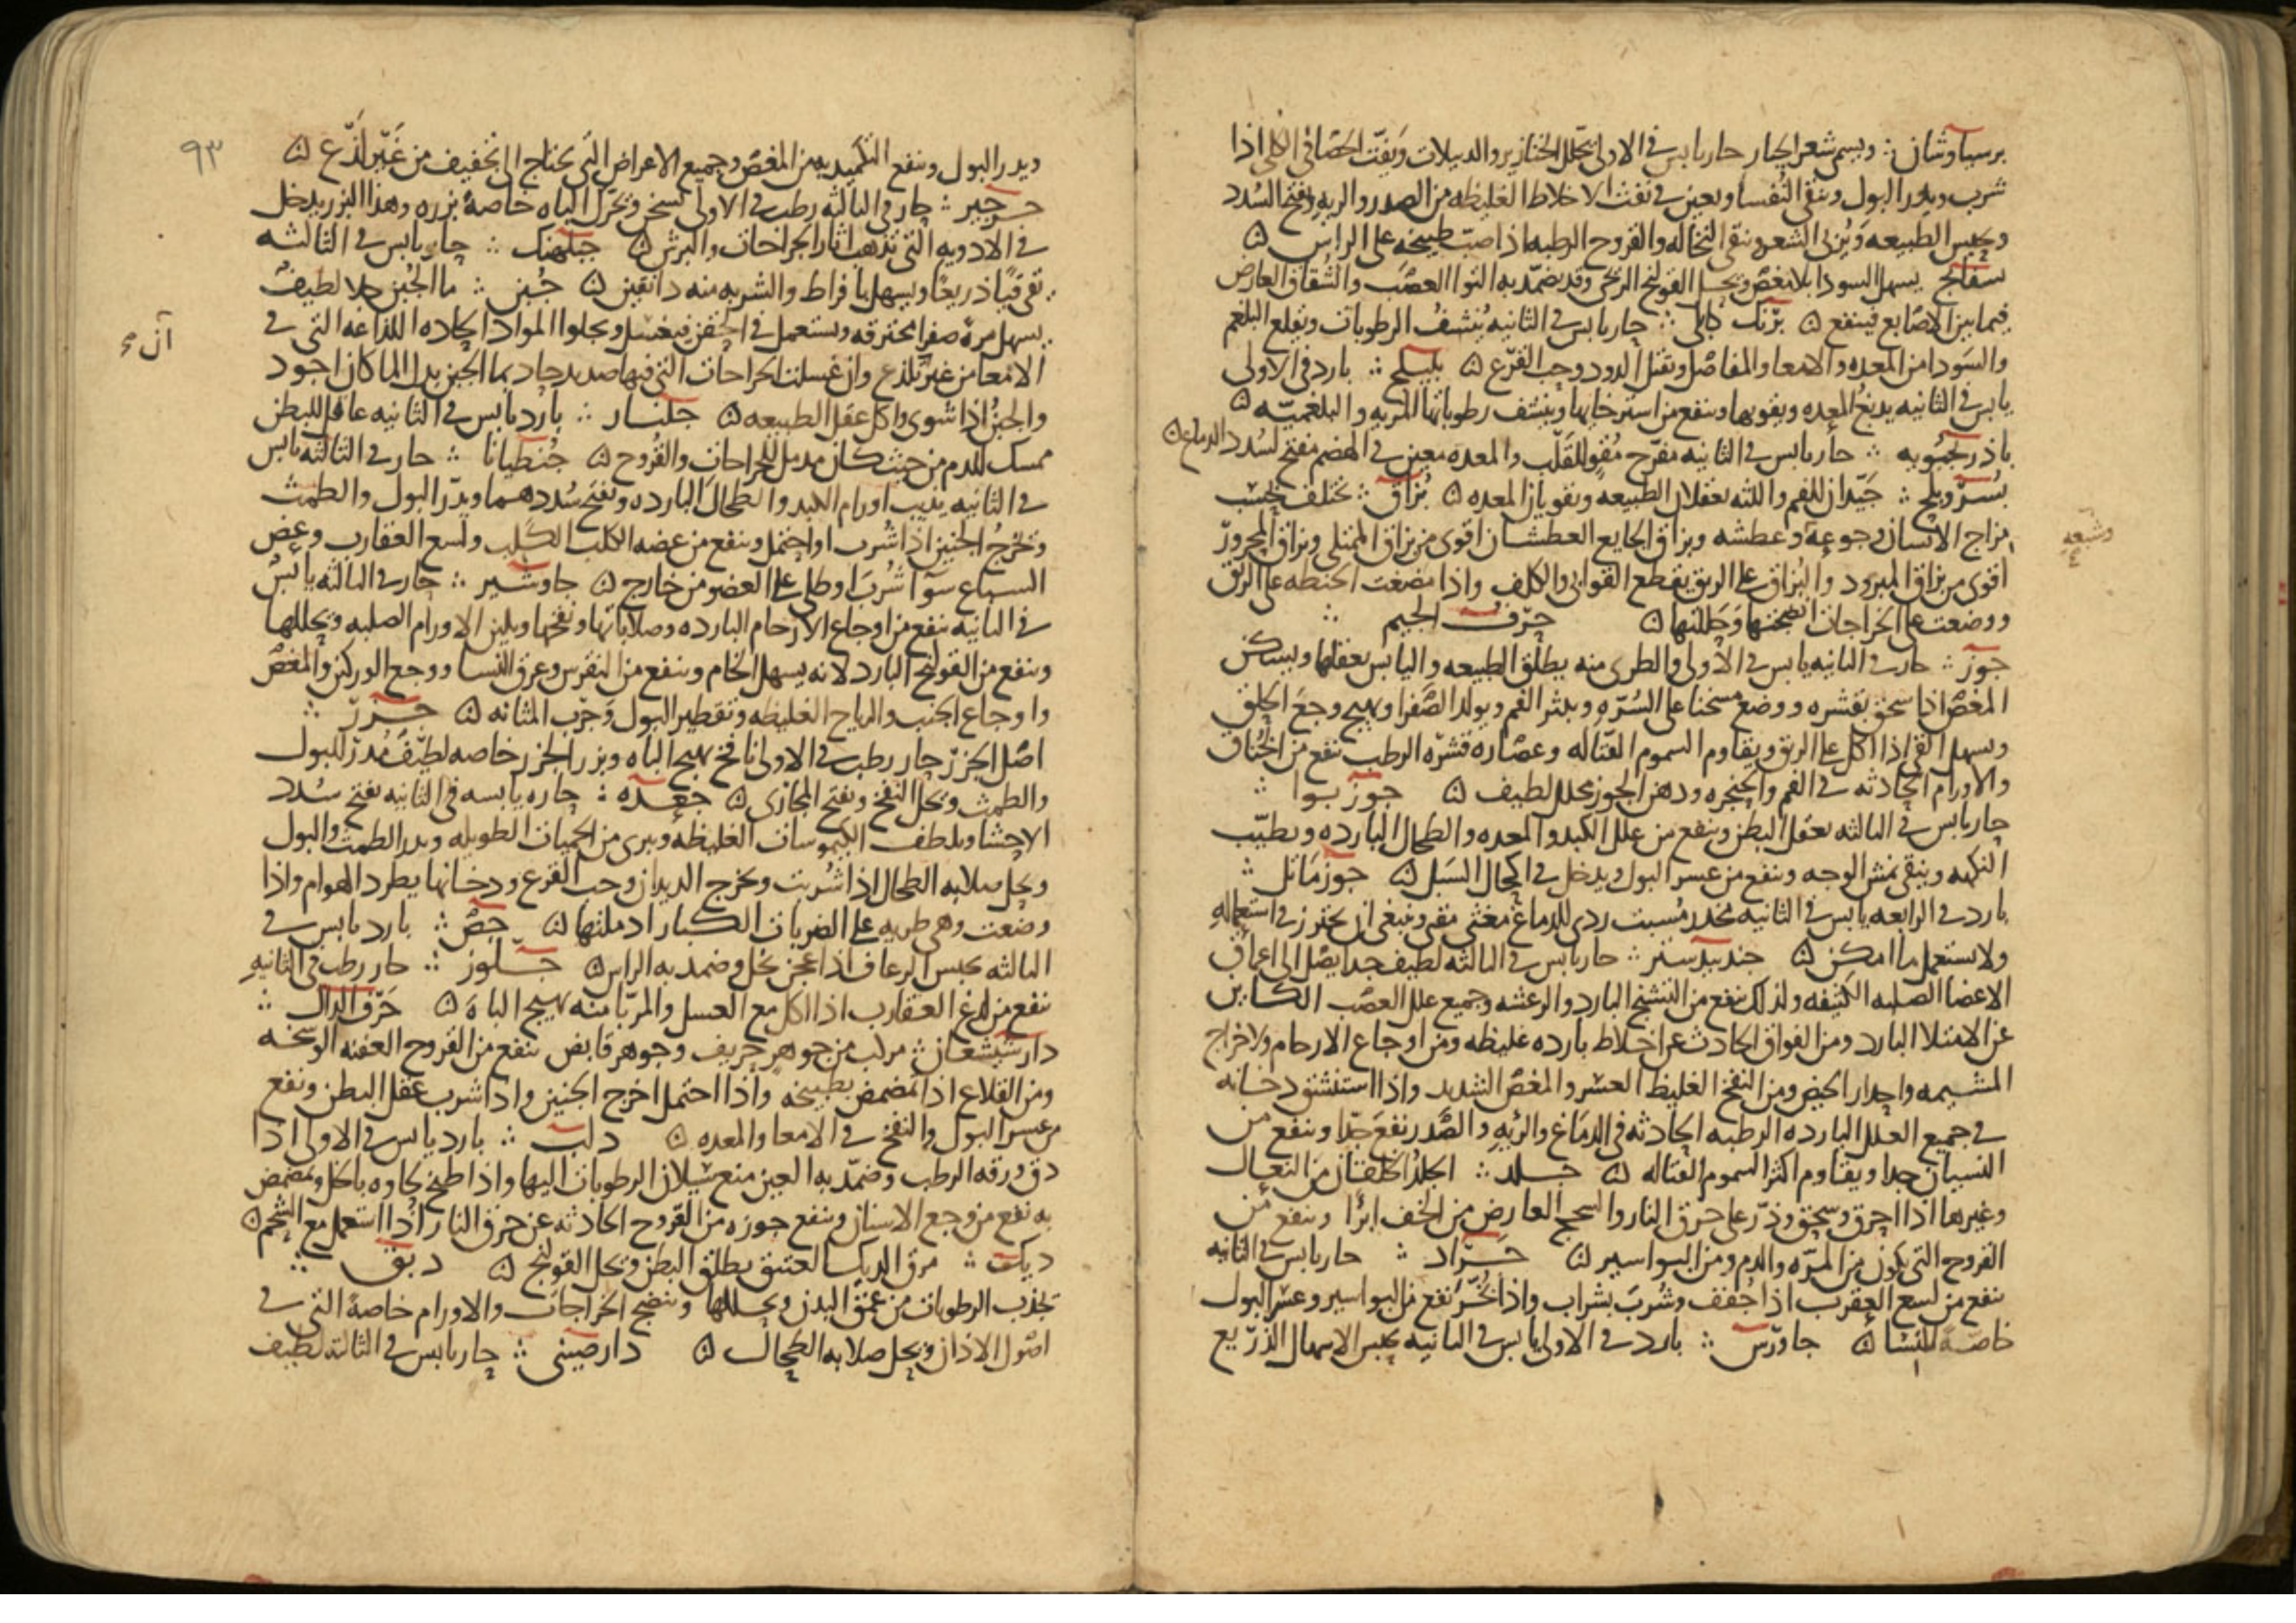 برسياوشان ؞ ويسمى شعر الجبار حار يابس في الاولى يحلل الخنازير والدبيلات ويفتت الحصا في الكلى اذا
شرب ويدر البول وينقي النفسا ويعين في نفث الاخلاط الغليظه من الصدر والريه ويفتح السدد
ويحبس الطبيعه وينقي النخاله والقروح الرطبه اذا صب طبيخه على الراس ۞
بسفايج يسهل السودا بلا مغص ويحلل القولنج الريحي وقد يضمد به التوا العصب والشقاق العارض
فيما بين الاصابع فينفع ۞ برنك كابلي ؞ حار يابس في الثانيه ينشف الرطوبات ويقلع البلغم
والسودا من المعده والامعا والمفاصل ويقتل الدود وحب القرع ۞ بليلج ؞ بارد في الاولى
يابس في الثانيه يدبغ المعده ويقويها وينفع من استرخايها وينشف رطوباتها المريه والبلغميه ۞
باذرنجبويه ؞ حار يابس في الثانيه مفرح مقو للقلب والمعده معين في الهضم مفتح لسدد الدماغ ۞
بسر وبلح ؞ جيدان للفم واللثه يعقلان الطبيعه ويقويان المعده ۞ بزاق ؞ يختلف بحسب
وشبعه
مزاج الانسان وجوعه وعطشه وبزاق الجايع العطشان اقوى من بزاق الممتلي وبزاق المحرور
اقوى من بزاق المبرود والبزاق على الريق يقطع القوابي والكلف واذا مضغت الحنطه على الريق
ووضعت على الخراجات انضجتها وحللتها ۞ حرف الجيم ؞
جوز ؞ حار في الثانيه يابس في الاولى والطري منه يطلق الطبيعه واليابس يعقلها ويسكن
المغص اذا سحق بقشره ووضع مسخنا على السره ويبثر الفم ويولد الصفرا ويهيج وجع الحلق
ويسهل القي اذا اكل على الريق ويقاوم السموم القتاله وعصاره قشره الرطب تنفع من الخناق
والاورام الحادثه في الفم والحنجره ودهن الجوز محلل لطيف ۞ جوز بوا ؞
حار يابس في الثالثه يعقل البطن وينفع من علل الكبد والمعده والطحال البارده ويطيب
النكهه وينقي نمش الوجه وينفع من عسر البول ويدخل في اكحال السبل ۞ جوز ماثل ؞
بارد في الرابعه يابس في الثانيه مخدر مسبت ردي للدماغ مغثي مقي وينبغي ان يحترز في استعماله
ولا يستعمل ما امكن ۞ جندبيدستر ؞ حار يابس في الثالثه لطيف جدا يصل الى اعماق
الاعضا الصلبه الكثيفه ولذلك ينفع من التشنج البارد والرعشه وجميع علل العصب الكاين
عن الامتلا البارد ومن الفواق الحادث عن اخلاط بارده غليظه ومن اوجاع الارحام ولاخراج
المشيمه واحدار الحيض ومن النفخ الغليظ العسر والمغص الشديد واذا استنشق دخانه
في جميع العلل البارده الرطبه الحادثه في الدماغ والريه والصدر نفع جدا وينفع من
النسيان جدا ويقاوم اكثر السموم القتاله ۞ جلد ؞ الجلد الخلقان من النعال
وغيرها اذا احرق وسحق وذر على حرق النار والسحج العارض من الخف ابرا وينفع من
القروح التي تكون من المره والدم ومن البواسير ۞ جراد ؞ حار يابس في الثانيه
ينفع من لسع العقرب اذا جفف وشرب بشراب واذا تبخر نفع من البواسير وعسر البول
خاصه للنسا ۞ جاورس ؞ بارد في الاولى يابس في الثانيه يحبس الاسهال الذريع
٩٣
ويدر البول وينفع التكميد به من المغص وجميع الاعراض التي يحتاج الى تخفيف من غير لذع ۞
جرجير ؞ حار في الثالثه رطب في الاولى يسخن ويحرك الباه خاصة بزره وهذا البزر يدخل
في الادويه التي تذهب اثار الجراحات والبرش ۞ جبلهنك ؞ حار يابس في الثالثه
يقي قيا ذريعا ويسهل بافراط والشربه منه دانقين ۞ جبن ؞ ما الجبن جلا لطيف
يسهل مرة صفرا محترقه ويستعمل في الحقن فيغسل ويجلوا المواد الحاده اللذاعه التي في
الامعا من غير تلذع وان غسلت الجراحات التي فيها صديد حاد بما الجبن بدل الما كان اجود
والجبن اذا شوي واكل عقل الطبيعه ۞ جلنار ؞ بارد يابس في الثانيه عاقل للبطن
ممسك للدم من حيث كان مدمل للجراحات والقروح ۞ جنطيانا ؞ حار في الثالثه يابس
في الثانيه يذيب اورام الكبد والطحال البارده ويفتح سددهما ويدر البول والطمث
ويخرج الجنين اذا شرب او احتمل وينفع من عضه الكلب الكلب ولسع العقارب وعض
السباع سوا شرب او طلي على العضو من خارج ۞ جاوشير ؞ حار في الثالثه يابس
في الثانيه ينفع من اوجاع الارحام البارده وصلاباتها ونفخها ويلين الاورام الصلبه ويحللها
وينفع من القولنج البارد لانه يسهل الخام وينفع من النقرس وعرق النسا ووجع الوركين والمغص
واوجاع الجنب والرياح الغليظه وتقطير البول وجرب المثانه ۞ جزر ؞
اصل الجزر حار رطب في الاولى نافخ يهيج الباه وبزر الجزر خاصه لطيف مدر للبول
والطمث ويحلل النفخ ويفتح المجاري ۞ جعده ؞ حاره يابسه في الثانيه يفتح سدد
الاحشا ويلطف الكيموسات الغليظه ويبري من الحميات الطويله ويدر الطمث والبول
ويحل صلابه الطحال اذا شربت ويخرج الديدان وحب القرع ودخانها يطرد الهوام واذا
وضعت وهي طريه على الضربات الكبار ادملتها ۞ جص ؞ بارد يابس في
الثالثه يحبس الرعاف اذا عجن بخل وضمد به الراس ۞ جلوز ؞ حار رطب في الثانيه
ينفع من لدغ العقارب اذا اكل مع العسل والمربا منه يهيج الباه ۞ حرف الدال ؞
دارشيشعان ؞ مركب من جوهر حريف وجوهر قابض ينفع من القروح العفنه الوسخه
ومن القلاع اذا تمضمض بطبيخه واذا احتمل اخرج الجنين واذا شرب عقل البطن ونفع
من عسر البول والنفخ في الامعا والمعده ۞ دلب ؞ بارد يابس في الاولى اذا
دق ورقه الرطب وضمد به العين منع سيلان الرطوبات اليها واذا طبخ لحاوه بالخل وتمضمض
به نفع من وجع الاسنان وينفع جوزه من القروح الحادثه عن حرق النار اذا استعمل مع الشحم ۞
ديك ؞ مرق الديك العتيق يطلق البطن ويحل القولنج ۞ دبق ؞
يجذب الرطوبات من عمق البدن ويحللها وينضج الخراجات والاورام خاصة التي في
اصول الاذان ويحل صلابه الطحال ۞ دارصيني ؞ حار يابس في الثالثه لطيف